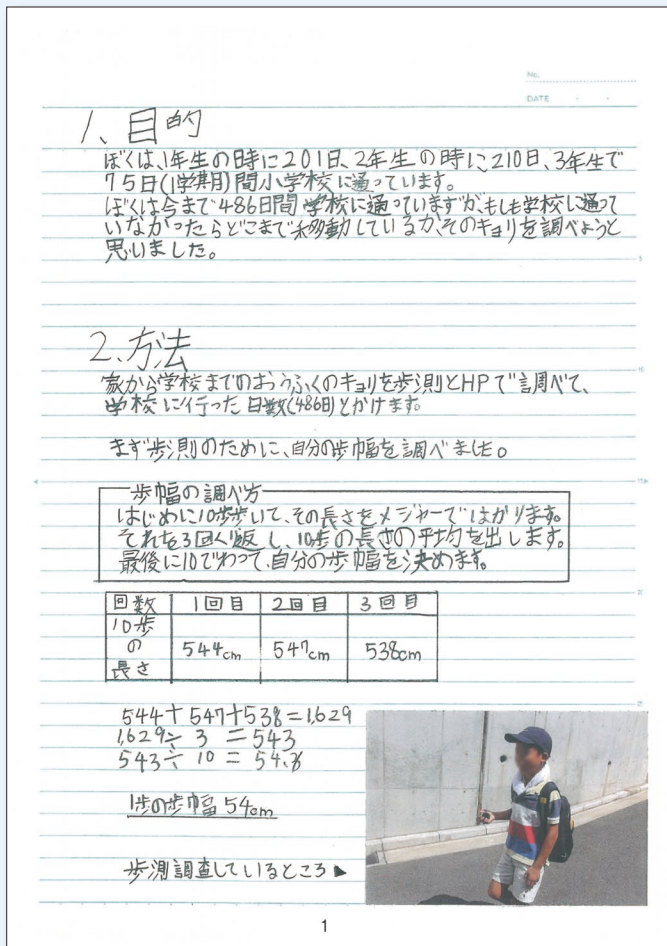 No.
DATE ・ ・
1、目的
ぼくは、1年生の時に201日、2年生の時に210日、3年生で
75日(1学期)間小学校に通っています。
ぼくは今まで486日間学校に通っていますが、もしも学校に通って
いなかったらどこまで移動しているか、そのキョリを調べようと
思いました。
2、方法
家から学校までのおうふくのキョリを歩測とHPで調べて、
学校に行った日数(486日)とかけます。
まず歩測のために、自分の歩幅を調べました。
歩幅の調べ方
はじめに10歩歩いて、その長さをメジャーではかります。
それを3回くり返し、10歩の長さの平均を出します。
最後に10でわって、自分の歩幅を決めます。
回数 1回目 2回目 3回目
10歩の長さ 544cm 547cm 538cm
544+547+538=1,629
1,629÷3=543
543÷10=54.3
1歩の歩幅54cm
歩測調査しているところ▶
1